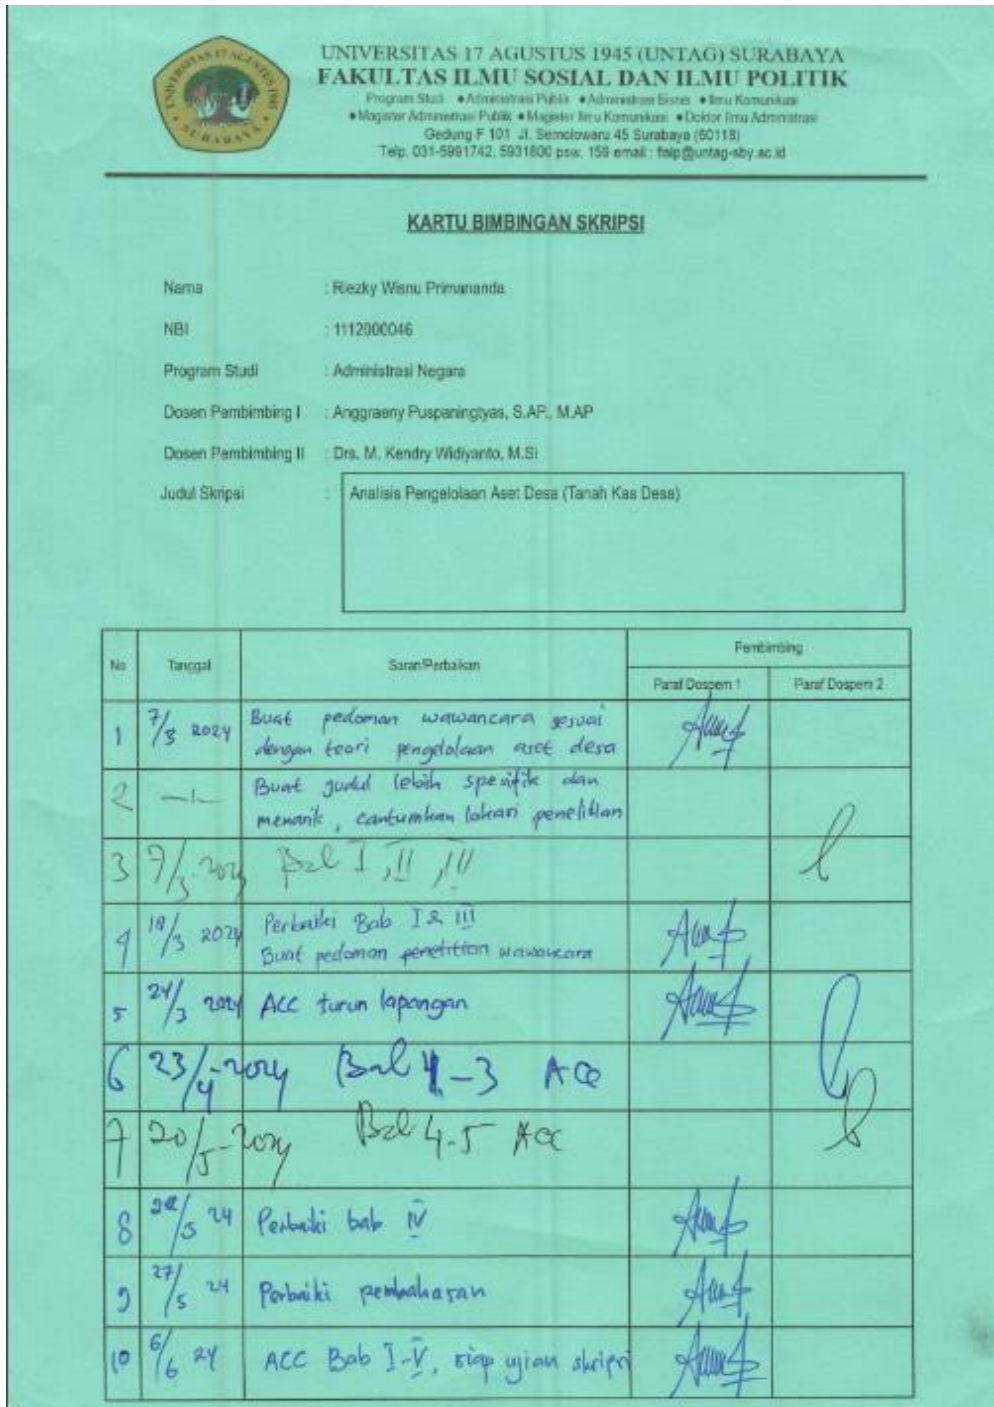 UNIVERSITAS 17 AGUSTUS 1945 (UNTAG) SURABAYA
FAKULTAS ILMU SOSIAL DAN ILMU POLITIK
Program Studi ● Administrasi Publik ● Administrasi Bisnis ● Ilmu Komunikasi
● Magister Administrasi Publik ● Magister Ilmu Komunikasi ● Doktor Ilmu Administrasi
Gedung F 101 Jl. Semolowaru 45 Surabaya (60118)
Telp. 031-5991742, 5931800 psw. 159 email : fisip@untag-sby.ac.id
UNIVERSITAS 17 AGUSTUS 1945
SURABAYA
KARTU BIMBINGAN SKRIPSI
Nama : Riezky Wisnu Primananda
NBI : 1112000046
Program Studi : Administrasi Negara
Dosen Pembimbing I : Anggraeny Puspaningtyas, S.AP., M.AP
Dosen Pembimbing II : Drs. M. Kendry Widiyanto, M.Si
Judul Skripsi : Analisis Pengelolaan Aset Desa (Tanah Kas Desa)
No Tanggal Saran/Perbaikan Pembimbing
Paraf Dospem 1 Paraf Dospem 2
1 7/3 2024 Buat pedoman wawancara sesuai
dengan teori pengelolaan aset desa
2 Buat judul lebih spesifik dan
menarik, cantumkan lokasi penelitian
3 7/3-2024 Bab I, II, III
4 19/3 2024 Perbaiki Bab I & III
Buat pedoman penelitian wawancara
5 24/3 2024 ACC turun lapangan
6 23/4-2024 Bab 1-3 ACC
7 20/5-2024 Bab 4-5 ACC
8 /5 24 Perbaiki bab IV
9 27/5 24 Perbaiki pembahasan
10 6/6 24 ACC Bab I-V, siap ujian skripsi